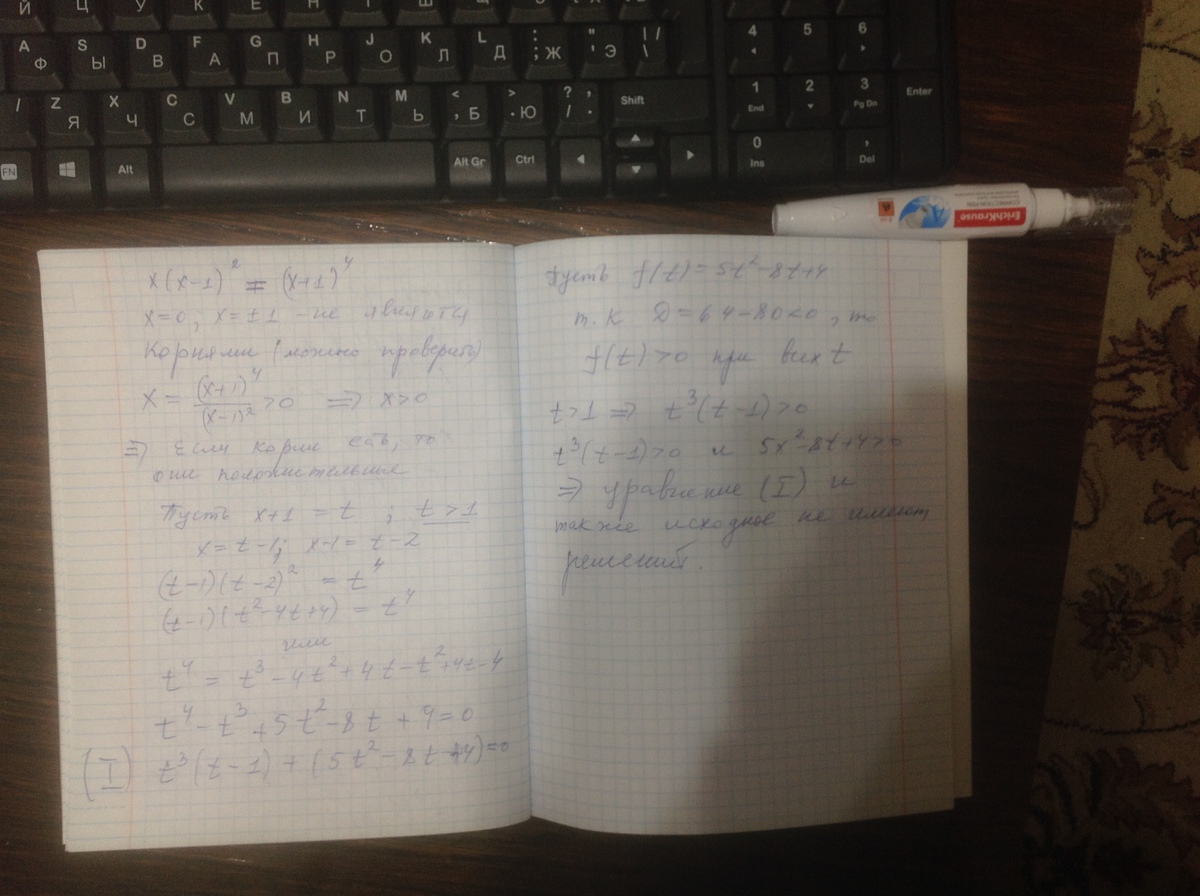 Й Ц У К Е Н Г Ш
A Ф S Ы D В F А G П H Р J О K Л L Д ; : Ж " ' Э | / \
4 5 6
/ Z Я X Ч C С V М B И N Т M Ь < , Б > . Ю ? , / . Shift
1 End 2 3 Pg Dn Enter
FN Alt Alt Gr Ctrl 0 Ins , Del
ErichKrause
CORRECTION PEN
x(x-1)² = (x+1)⁴
x=0; x=±1 - не являются
корнями (можно проверить)
x = (x+1)⁴/(x-1)² >0 => x>0
=> Если корни есть, то
они положительные
Пусть x+1 = t ; t > 1
x=t-1; x-1= t-2
(t-1)(t-2)² = t⁴
(t-1)(t²-4t+4) = t⁴
или
t⁴ = t³ - 4t² + 4t - t² + 4t - 4
t⁴ - t³ + 5t² - 8t + 4 = 0
(I) t³(t-1) + (5t² - 8t + 4) = 0
Пусть f(t) = 5t² - 8t + 4
т.к D = 64-80<0, то
f(t)>0 при всех t
t>1 => t³(t-1)>0
t³(t-1)>0 и 5x²-8t+4>0
=> уравнение (I) и
также исходное не имеют
решений.